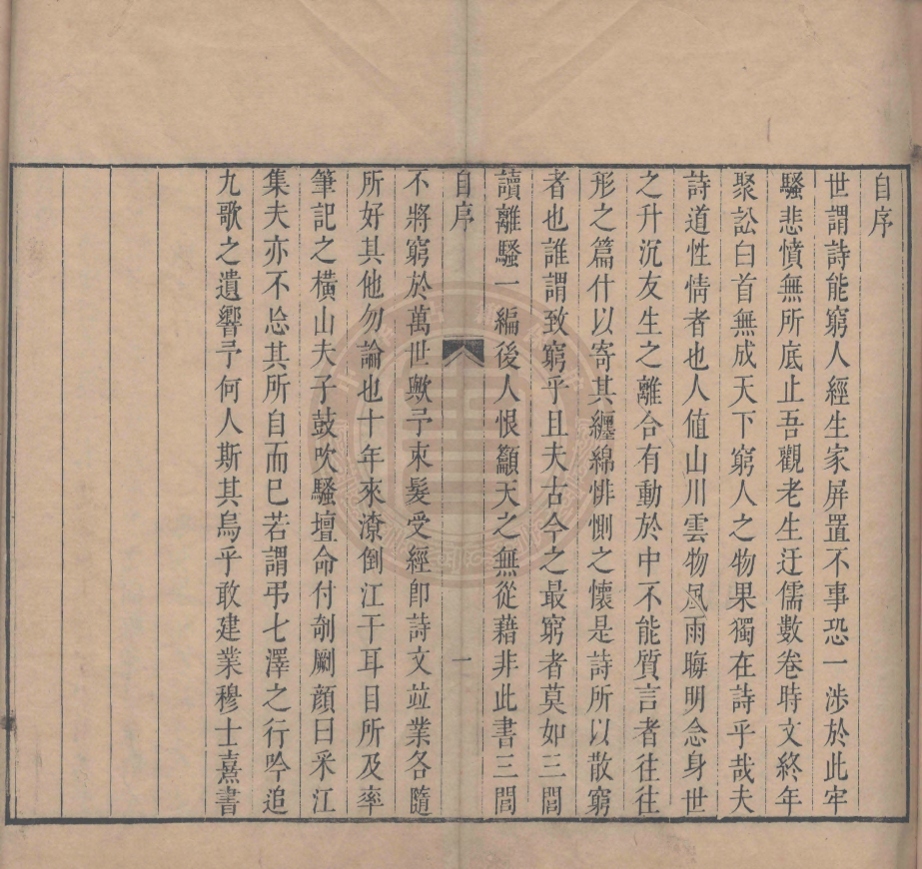 自序
世謂詩能窮人經生家屏置不事恐一涉於此牢
騷悲憤無所底止吾觀老生迂儒數卷時文終年
聚訟白首無成天下窮人之物果獨在詩乎哉夫
詩道性情者也人値山川雲物風雨晦明念身世
之升沉友生之離合有動於中不能質言者往往
形之篇什以寄其纏綿悱惻之懷是詩所以散窮
者也誰謂致窮乎且夫古今之最窮者莫如三閭
讀離騷一編後人恨籲天之無從藉非此書三閭
自序
一
不將窮於萬世歟予束髮受經卽詩文竝業各隨
所好其他勿論也十年來潦倒江干耳目所及率
筆記之橫山夫子鼓吹騷壇命付剞劂顔曰采江
集夫亦不忘其所自而已若謂弔七澤之行吟追
九歌之遺響予何人斯其烏乎敢建業穆士熹書